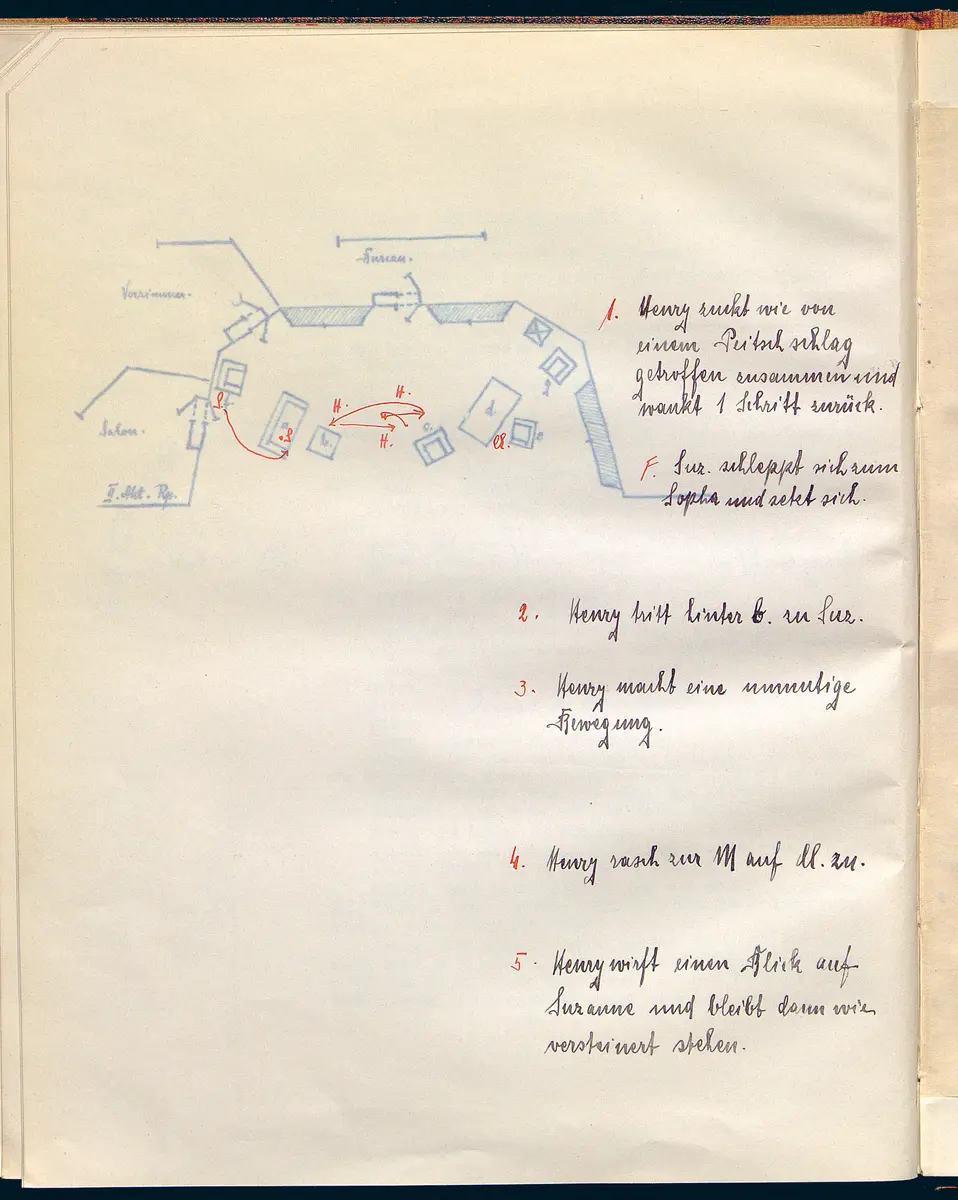 Bureau.
Vorzimmer.
Salon.
II. Akt. Rp.
S.
a.
S.
b.
H.
H.
H.
c.
d.
e.
Cl.
1. Henry zuckt wie von
einem Peitschschlag
getroffen zusammen und
wankt 1 Schritt zurück.
F. Suz. schleppt sich zum
Sopha und setzt sich.
2. Henry tritt hinter b. zu Suz.
3. Henry macht eine unmutige
Bewegung.
4. Henry rasch zur M auf Cl. zu.
5. Henry wirft einen Blick auf
Suzanne und bleibt dann wie
versteinert stehen.